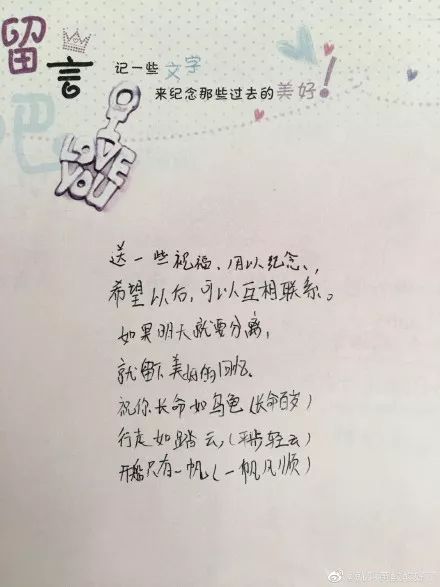 留言吧
记一些文字
来纪念那些过去的美好!
I LOVE YOU
送一些祝福,用以纪念,
希望以后,可以互相联系。
如果明天就要分离,
就留下美好的回忆。
祝你长命如乌龟(长命百岁)
行走如踏云,(平步轻云)
开船只有一帆(一帆风顺)